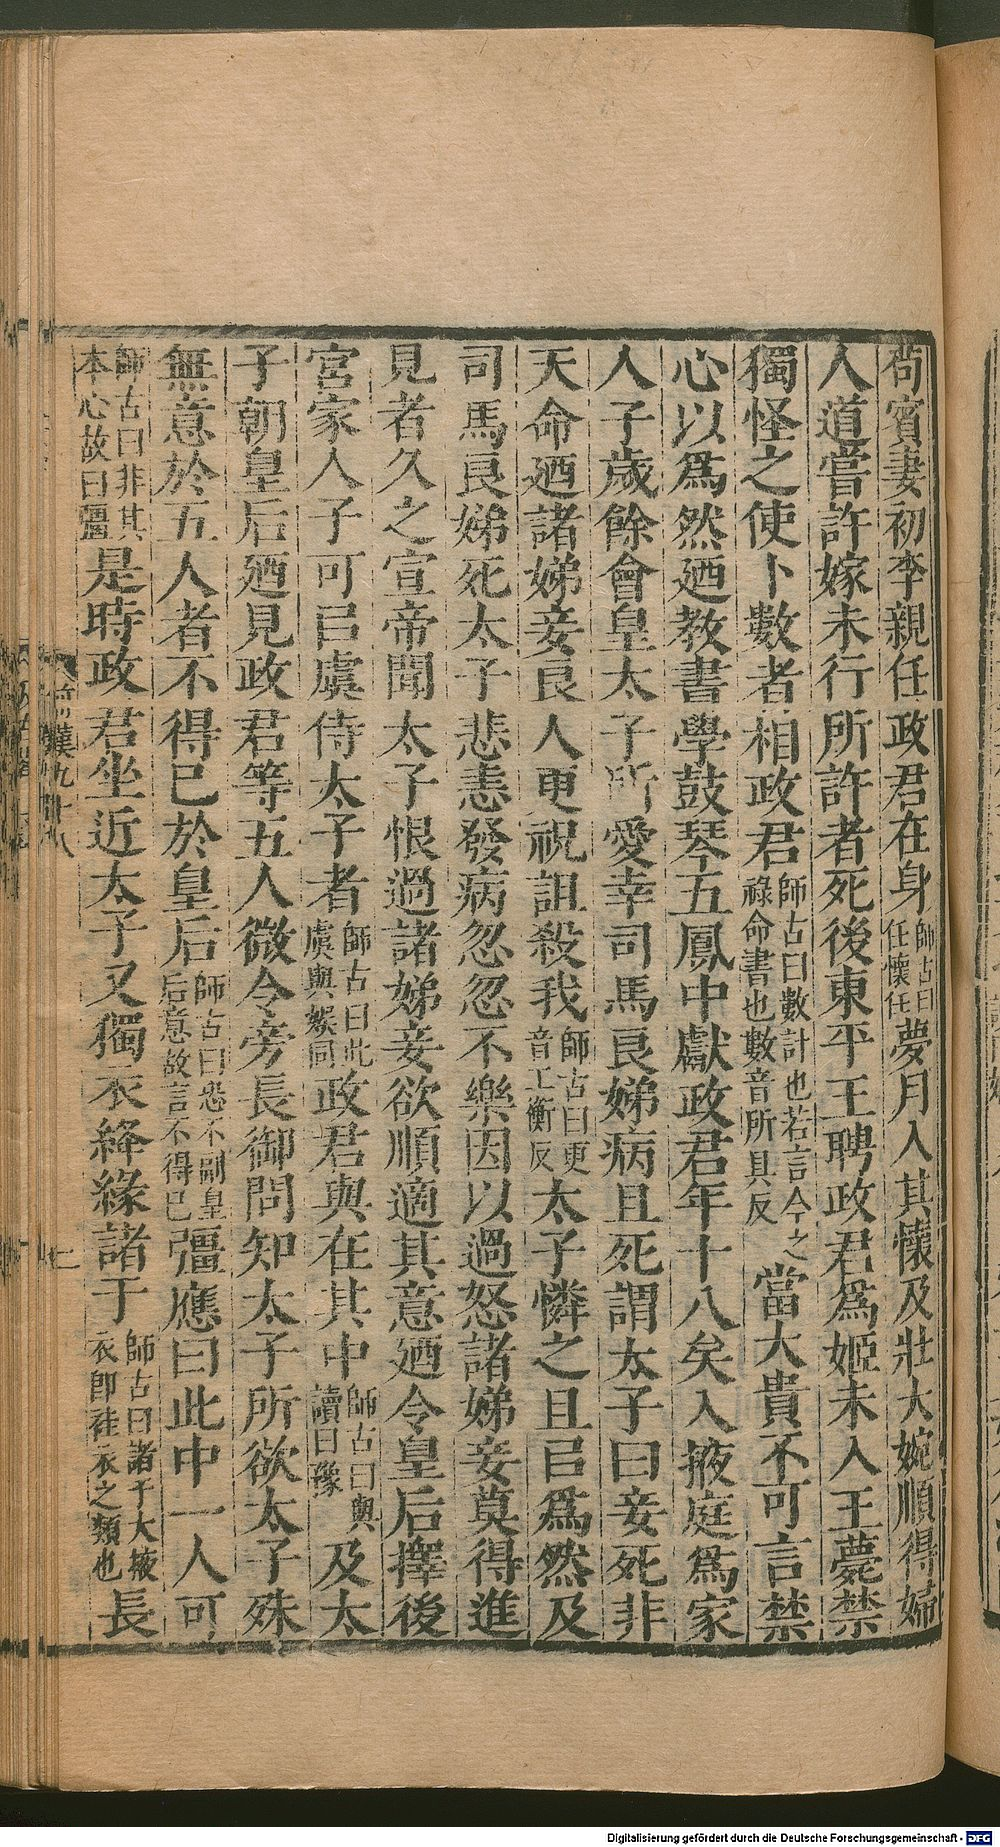 苟賓妻初李親任政君在身師古曰任懷任夢月入其懷及壯大婉順得婦
人道嘗許嫁未行所許者死後東平王聘政君爲姬未入王薨禁
獨怪之使卜數者相政君師古曰數計也若言今之祿命書也數音所具反當大貴不可言禁
心以爲然廼教書學鼓琴五鳳中獻政君年十八矣入掖庭爲家
人子歲餘會皇太子所愛幸司馬良娣病且死謂太子曰妾死非
天命廼諸娣妾良人更祝詛殺我師古曰更音工衡反太子憐之且㠯爲然及
司馬良娣死太子悲恚發病忽忽不樂因以過怒諸娣妾莫得進
見者久之宣帝聞太子恨過諸娣妾欲順適其意廼令皇后擇後
宮家人子可㠯虞侍太子者師古曰此虞與娛同政君與在其中師古曰與讀曰豫及太
子朝皇后廼見政君等五人微令旁長御問知太子所欲太子殊
無意於五人者不得已於皇后師古曰恐不副皇后意故言不得已彊應曰此中一人可
師古曰非其本心故曰彊是時政君坐近太子又獨衣絳緣諸于師古曰諸于大掖衣卽袿衣之類也長
前漢九十八
七
Digitalisierung gefördert durch die Deutsche Forschungsgemeinschaft - DFG